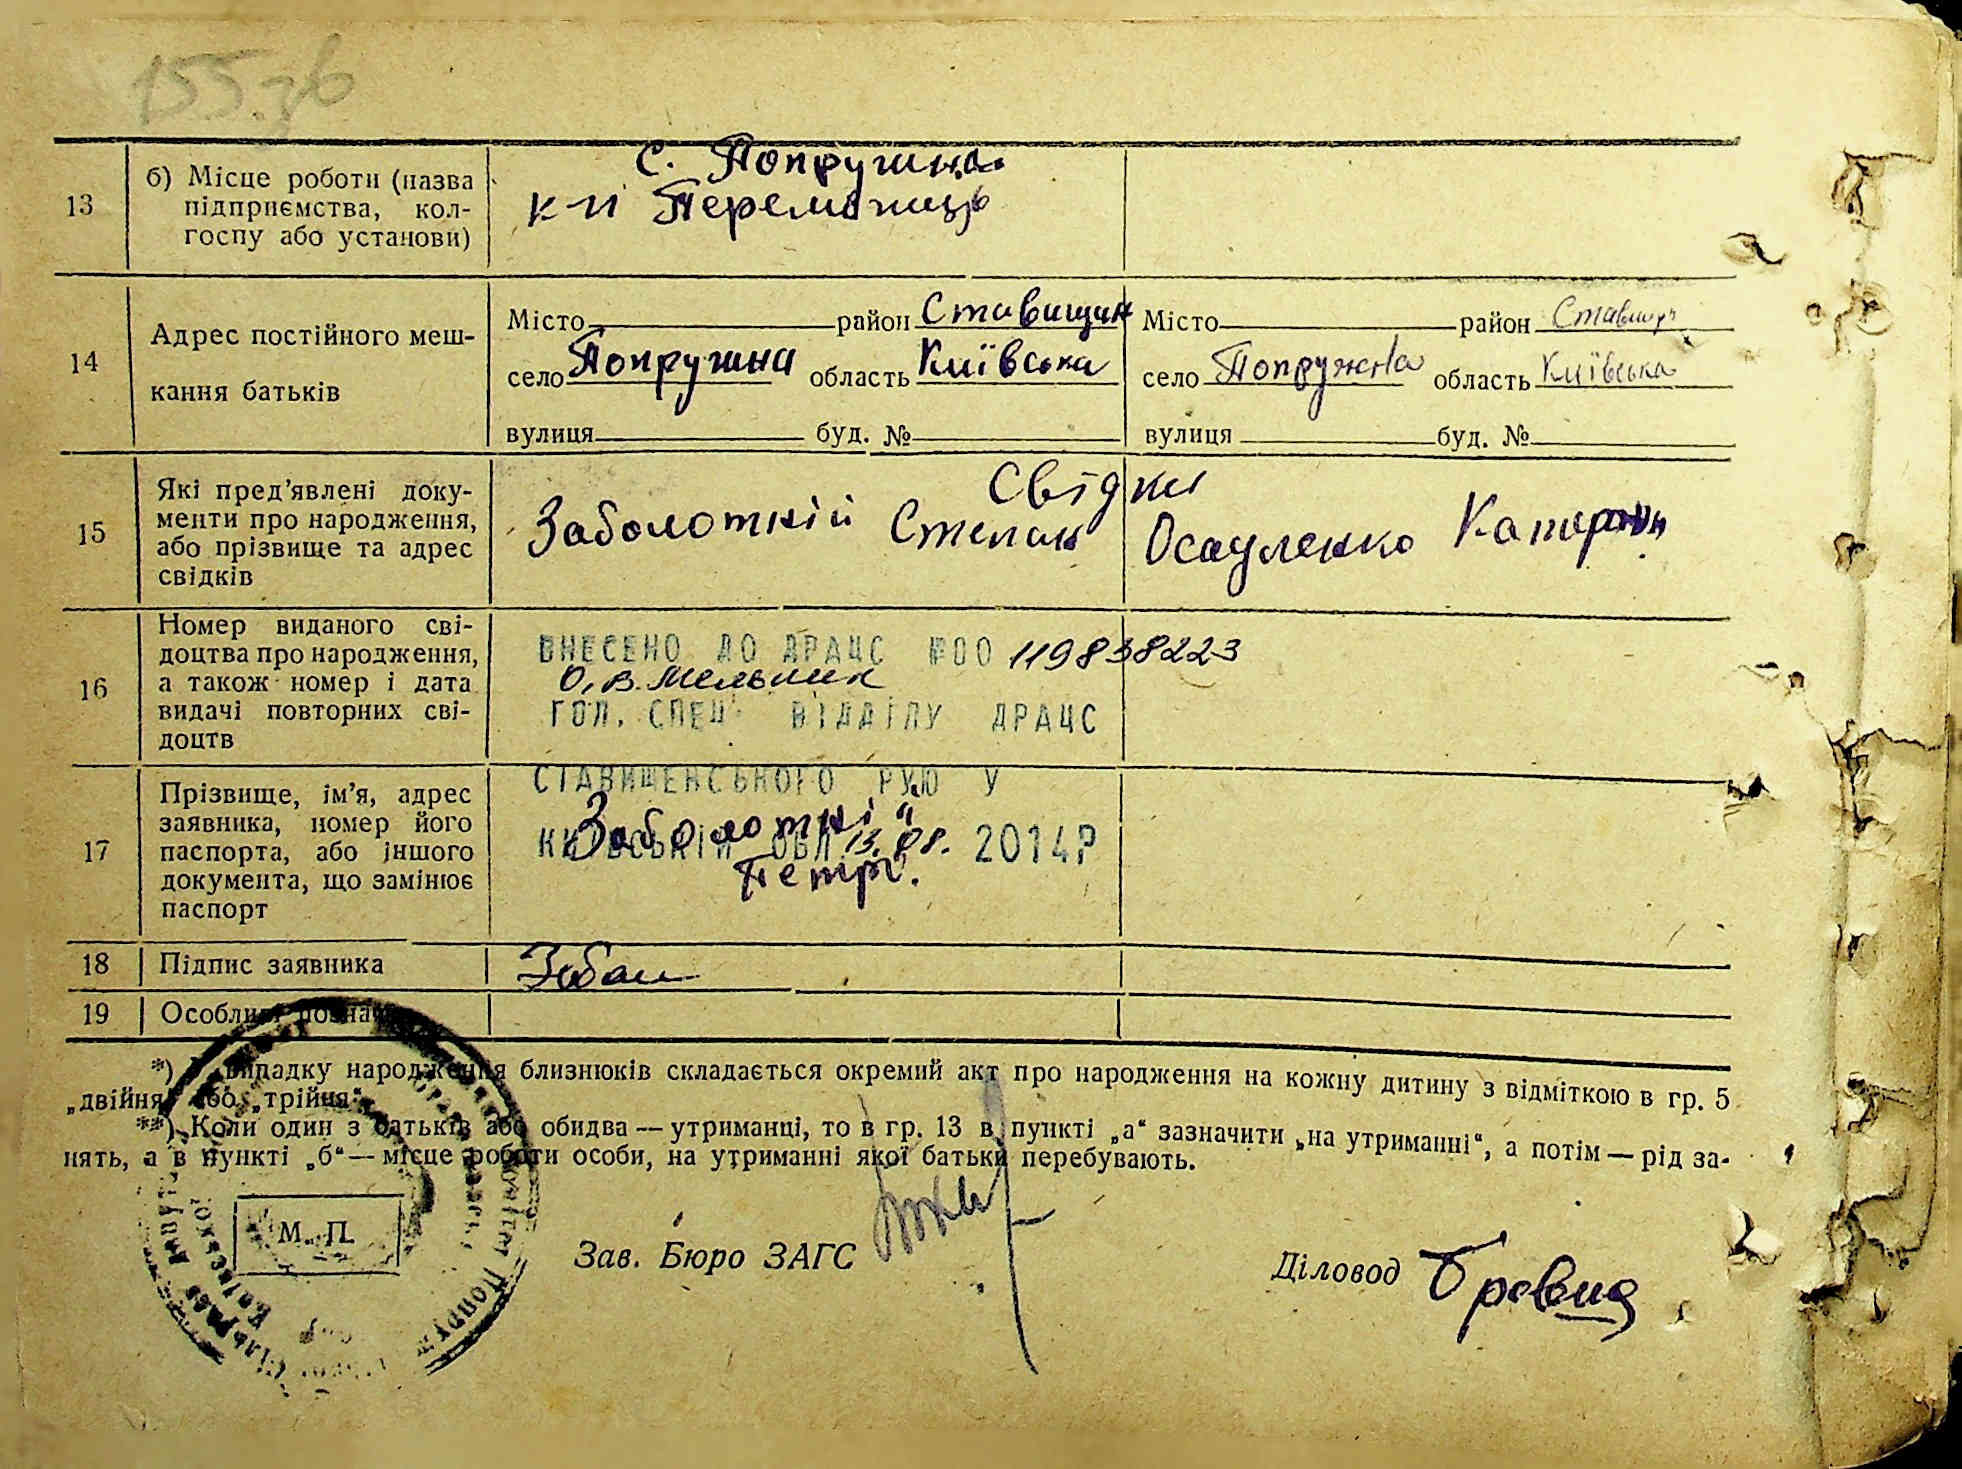 155 зв
13
б) Місце роботи (назва
підприємства, кол-
госпу або установи)
с. Попружна
к-п Переможець
14
Адрес постійного меш-
кання батьків
Місто район Ставищан
село Попружна область Київська
вулиця буд. №
Місто район
село Попружна область Київська
вулиця буд. №
15
Які пред'явлені доку-
менти про народження,
або прізвище та адрес
свідків
Свідки
Заболотній Степан Осауленко
16
Номер виданого сві-
доцтва про народження,
а також номер і дата
видачі повторних сві-
доцтв
ВНЕСЕНО ДО ДРАЦС №00 119838223
О.В. Мельник
ГОЛ. СПЕЦ ВІДДІЛУ ДРАЦС
СТАВИЩЕНСЬКОГО РУЮ У
КИЇВСЬКІЙ ОБЛ. 13.08. 2014Р
17
Прізвище, ім'я, адрес
заявника, номер його
паспорта, або іншого
документа, що замінює
паспорт
Заболотній
Петро.
18
Підпис заявника
19
Особливі познач
*) У випадку народження близнюків складається окремий акт про народження на кожну дитину з відміткою в гр. 5
„двійня“ або „трійня“.
**) Коли один з батьків або обидва — утриманці, то в гр. 13 в пункті „а“ зазначити „на утриманні“, а потім — рід за-
нять, а в пункті „б“ — місце роботи особи, на утриманні якої батьки перебувають.
М. П.
Зав. Бюро ЗАГС
Діловод